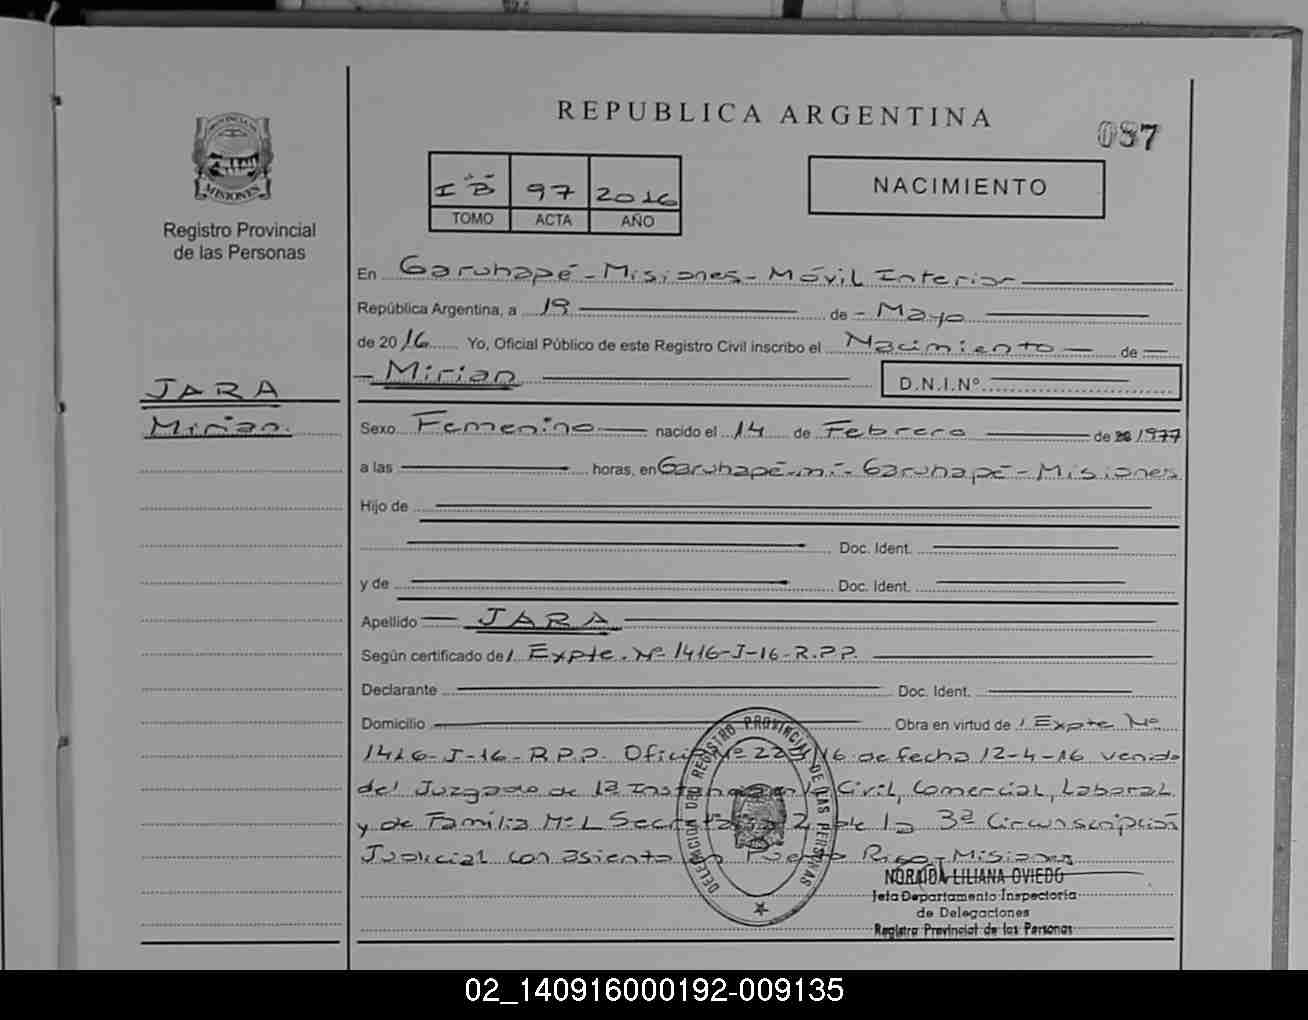 REPUBLICA ARGENTINA
087
PROVINCIA DE
MISIONES
Registro Provincial
de las Personas
I "B" 97 2016
TOMO ACTA AÑO
NACIMIENTO
En Garuhapé - Misiones - Móvil Interior
República Argentina, a 19 de - Mayo
de 2016 Yo, Oficial Público de este Registro Civil inscribo el Nacimiento de
Mirian
D.N.I.Nº
JARA
Mirian.
Sexo Femenino nacido el 14 de Febrero de 1977
a las horas, en Garuhapé-mí- Garuhapé - Misiones
Hijo de
Doc. Ident.
y de Doc. Ident.
Apellido JARA
Según certificado de Expte. Nº 1416-J-16-R.P.P.
Declarante Doc. Ident.
Domicilio Obra en virtud de Expte Nº
1416-J-16-R.P.P. Oficio Nº /16 de fecha 12-4-16 venido
del Juzgado de 1ª Instancia en lo Civil, Comercial, Laboral
y de Familia Nº 1 Secretaría 2 de la 3ª Circunscripción
Judicial con asiento en Puerto Rico - Misiones
DELEGACION DEL REGISTRO PROVINCIAL DE LAS PERSONAS
NORAIDA LILIANA OVIEDO
Jefa Departamento Inspectoría
de Delegaciones
Registro Provincial de las Personas
02_140916000192-009135